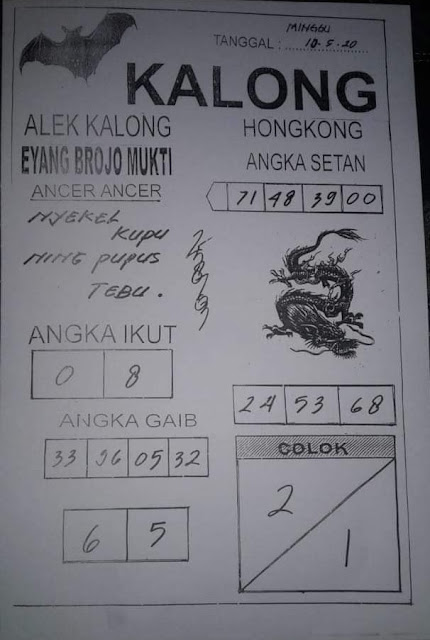 MINGGU
TANGGAL : 10-5-20
KALONG
ALEK KALONG
EYANG BROJO MUKTI
ANCER ANCER
NYEKEL
KUPU
NING PUPUS
TEBU.
ANGKA IKUT
0 8
ANGKA GAIB
33 96 05 32
6 5
HONGKONG
ANGKA SETAN
71 48 39 00
24 53 68
COLOK
2
1